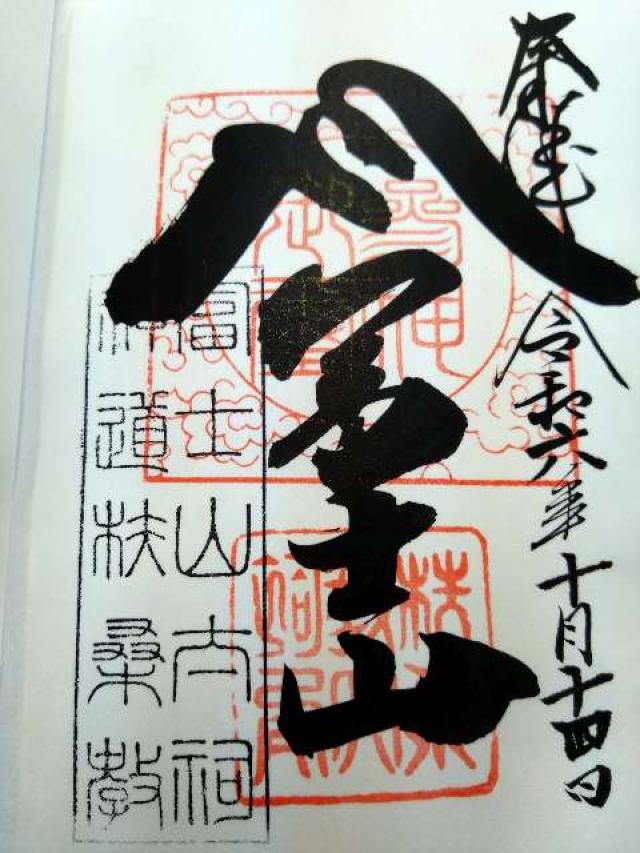 奉拝
令和六年十月十四日
冨士山
冨士山太祠
神道扶桑教